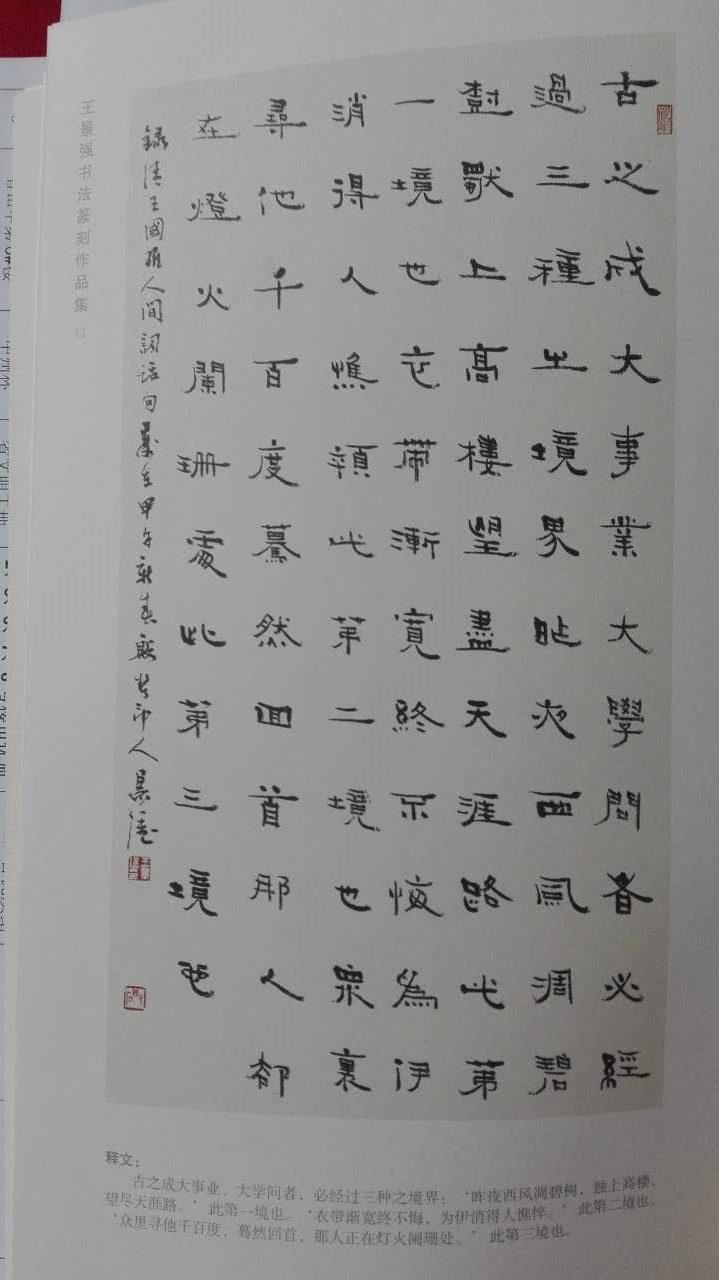 古之成大事業大學問者必經
過三種之境界昨夜西風凋碧
樹獨上高樓望盡天涯路此第
一境也衣帶漸寬終不悔為伊
消得人憔顇此第二境也眾裏
尋他千百度驀然回首那人卻
在燈火闌珊處此第三境也
録清王國維人間詞話句歲在甲午新春
印人景强
王景强书法篆刻作品集
释文：
古之成大事业、大学问者，必经过三种之境界：‘昨夜西风凋碧树，独上高楼，
望尽天涯路。’此第一境也。‘衣带渐宽终不悔，为伊消得人憔悴。’此第二境也。
‘众里寻他千百度，蓦然回首，那人正在灯火阑珊处。’此第三境也。